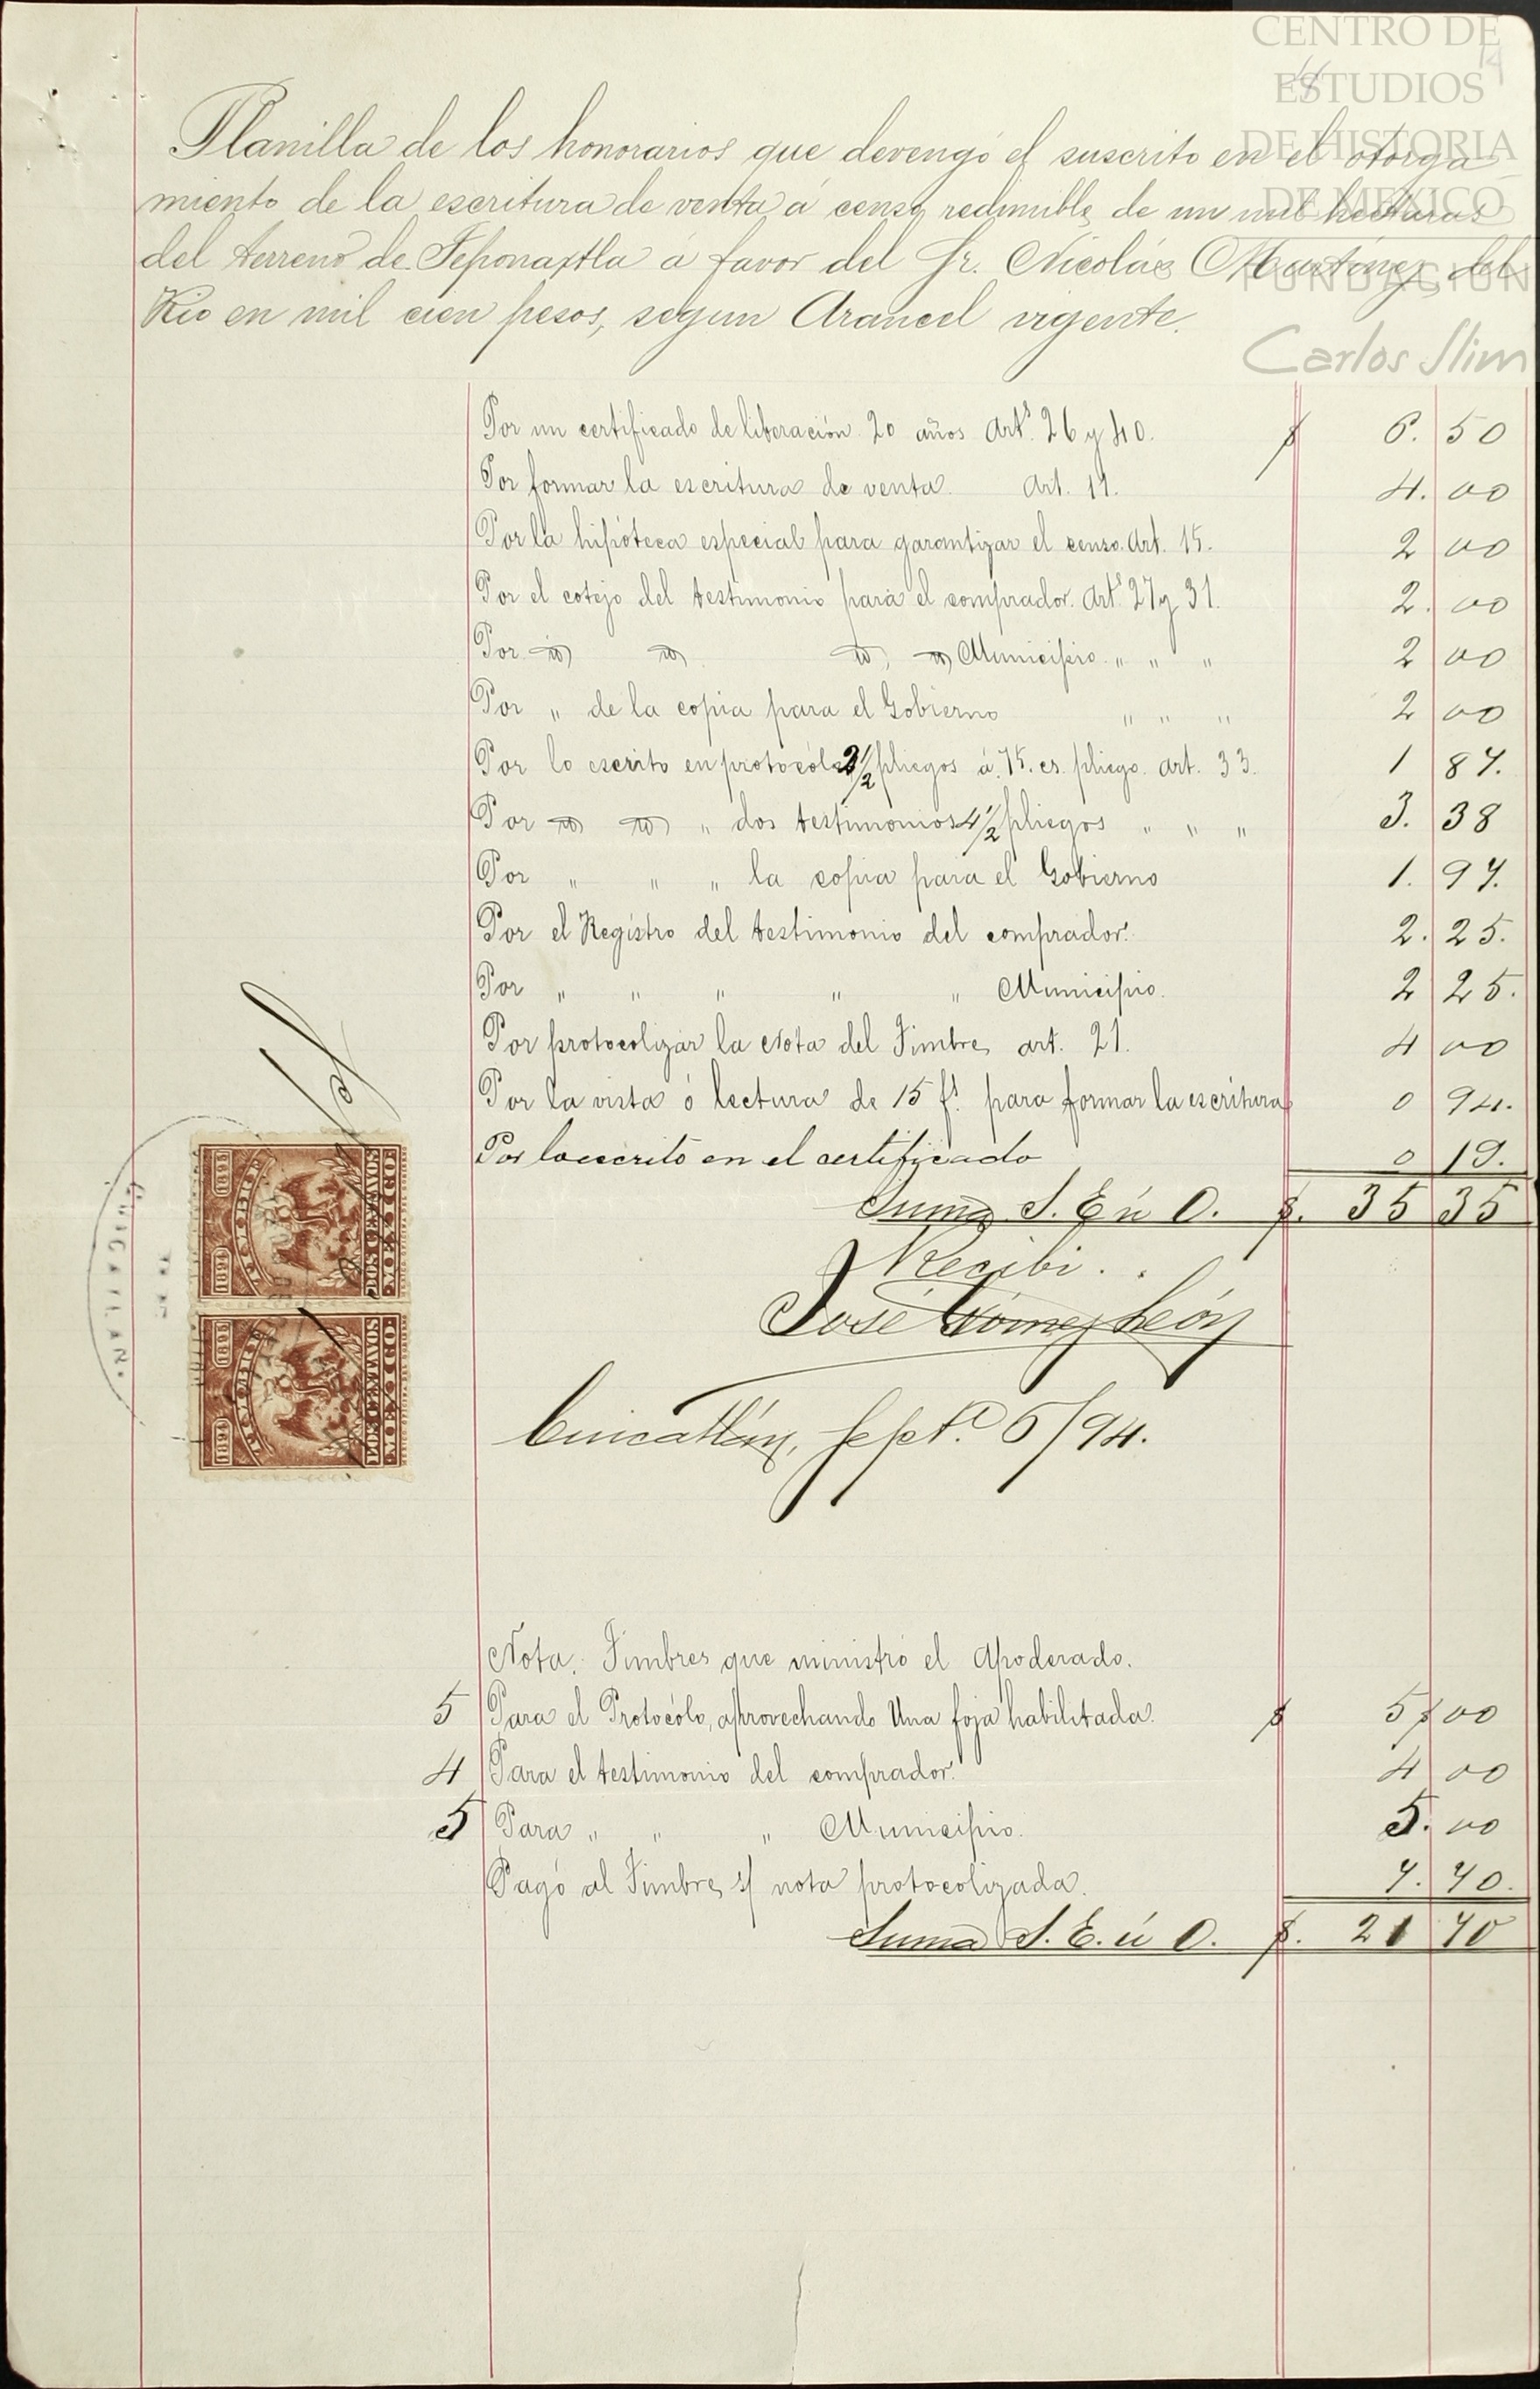 CENTRO DE
ESTUDIOS
DE HISTORIA
DE MÉXICO
FUNDACIÓN
Carlos Slim
14
Planilla de los honorarios que devengó el suscrito en el otorga-
miento de la escritura de venta á censo redimible de un mil hectaras
del terreno de Teponaxtla á favor del Sr. Nicolás Martínez del
Rio en mil cien pesos, segun Arancel vigente.
Por un certificado de liberación 20 años Arts. 26 y 40. $ 6. 50
Por formar la escritura de venta. Art. 11. 4. 00
Por la hipóteca especial para garantizar el censo. Art. 15. 2 00
Por el cotejo del testimonio para el comprador. Arts. 27 y 31. 2. 00
Por id id id id Municipio " " " 2 00
Por " de la copia para el Gobierno " " " 2 00
Por lo escrito en protocólo 2 1/2 pliegos á 75. cs. pliego. art. 33. 1 87.
Por id id " dos testimonios 4 1/2 pliegos " " " 3. 38
Por " " " la copia para el Gobierno 1. 97.
Por el Registro del testimonio del comprador. 2. 25.
Por " " " " " Municipio. 2 25.
Por protocolizar la Nota del Timbre art. 21. 4 00
Por la vista ó lectura de 15 fs. para formar la escritura 0 94.
Por lo escrito en el certificado 0 19.
Suma S. E ú O. $. 35 35
Recibi.
José Gómez León
Cuicatlán, Sept.e 5/94.
1894 1895
DOS CENTAVOS
MEXICO
1894 1895
DOS CENTAVOS
MEXICO
CUICATLAN.
Nota. Timbres que ministró el Apoderado.
5 Para el Protocólo, aprovechando Una foja habilitada. $ 5 00
4 Para el testimonio del comprador. 4 00
5 Para " " " Municipio. 5. 00
Pagó al Timbre s/ nota protocolizada. 7. 70.
Suma S. E. ú O. $. 21 70